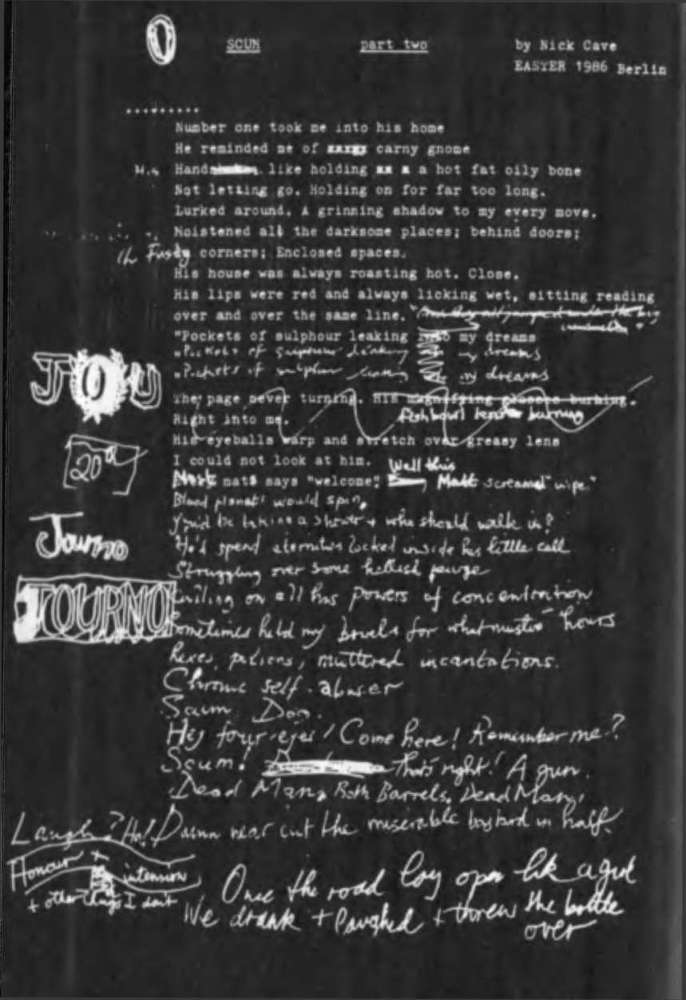 O
SCUM part two by Nick Cave
EASTER 1986 Berlin
.........
Number one took me into his home
He reminded me of xxxgy carny gnome
His Hands like holding xx x a hot fat oily bone
Not letting go. Holding on for far too long.
Lurked around. A grinning shadow to my every move.
Moistened all the darksome places; behind doors;
Fusdy corners; Enclosed spaces.
His house was always roasting hot. Close.
His lips were red and always licking wet, sitting reading
over and over the same line.
"Pockets of sulphour leaking into my dreams
"Pockets of sulphour leaking in my dreams
"Pockets of sulphur in my dreams
They page never turning. His magnifying glasses burning.
Right into me. fishbowl lenses burning
His eyeballs warp and stretch over greasy lens
I could not look at him. Well this
mats says "welcome" Matt screamed "wipe"
Blood planets would spin,
You'd be taking a shower + who should walk in?
He'd spend eternities locked inside his little cell
Struggling over some hellish
on all his powers of concentration
Sometimes held my bowels for what hours
Hexes, potions, muttered incantations.
Chronic self-abuser
Scum Dog
Hey four-eyes! Come here! Remember me?
Scum! That's right! A gun.
Dead Man, Both Barrels, Dead Man,
Laugh? Ha! Damn near cut the miserable bastard in half.
Once the road lay open like a gut
We drank + laughed + threw the bottle
over
JOU
20
Journo
JOURNO
Honour +
intension
+ other things I don't